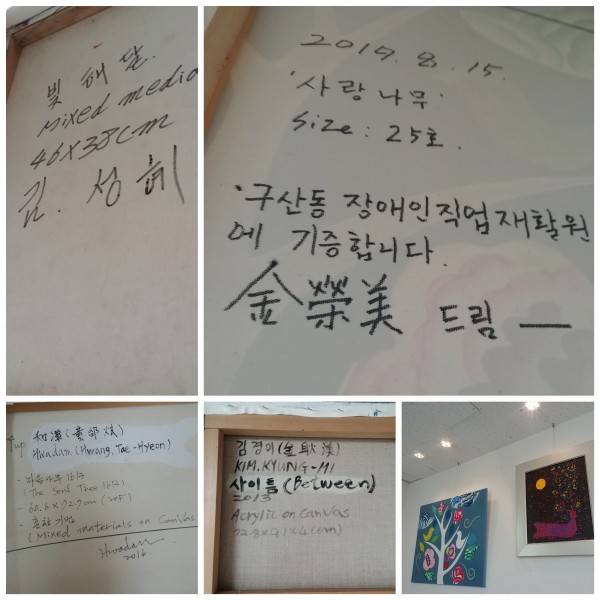 빛 해 달.
Mixed media
46X38cm
김. 성 혜
2019. 8. 15.
'사랑나무'
Size : 25호.
'구산동 장애인직업재활원
에 기증합니다.
金榮美 드림 —
↑up 和潭(黃
Hwadam.(Hwang, Tae-Hyeon)
- 마음나무
(The Soul Tree
- 60.6×72.7cm (20F)
- 혼합기법
(Mixed materials on Canvas
Hwadam
2016.
김경미(金
KIM. KYUNG-MI
사이 틈 (Between)
2013
Acrylic on canvas